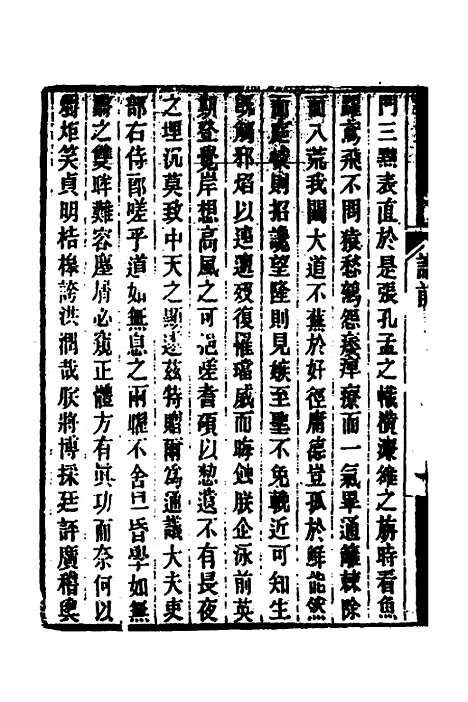 門三黜表直於是張孔孟之幟橫濂雒之旂時看魚
躍鳶飛不問猿愁鶴怨痿痺療而一氣畢通籬棘除
而八荒我闥大道不蕪於好徑庸德豈孤於鮮能然
而 則招讒望隆則見嫉至聖不免輓近可知生
既觸邪焰以 遭歿復罹璫威而晦蝕朕企泳前英
夙登覺岸想高風之可挹嗟耆碩以愁遺不有長夜
之埋沉莫致中天之顯遠茲特贈爾為通議大夫吏
部右侍郎嗟乎道如無息之兩曜不舍旦昏學如無
翳之雙眸難容塵屑必窺正體方有眞功而奈何以
爝炬笑貞明桔槔誇洪潤哉朕將博採廷評廣稽輿
誥前